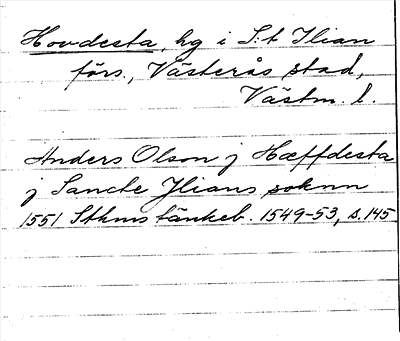 Hovdesta, hg i S:t Ilian
förs., Västerås stad,
Västm. l.
Anders Olson j Hæffdesta
j Sancte Jlians soknn
1551 Sthms tänkeb. 1549-53, s. 145